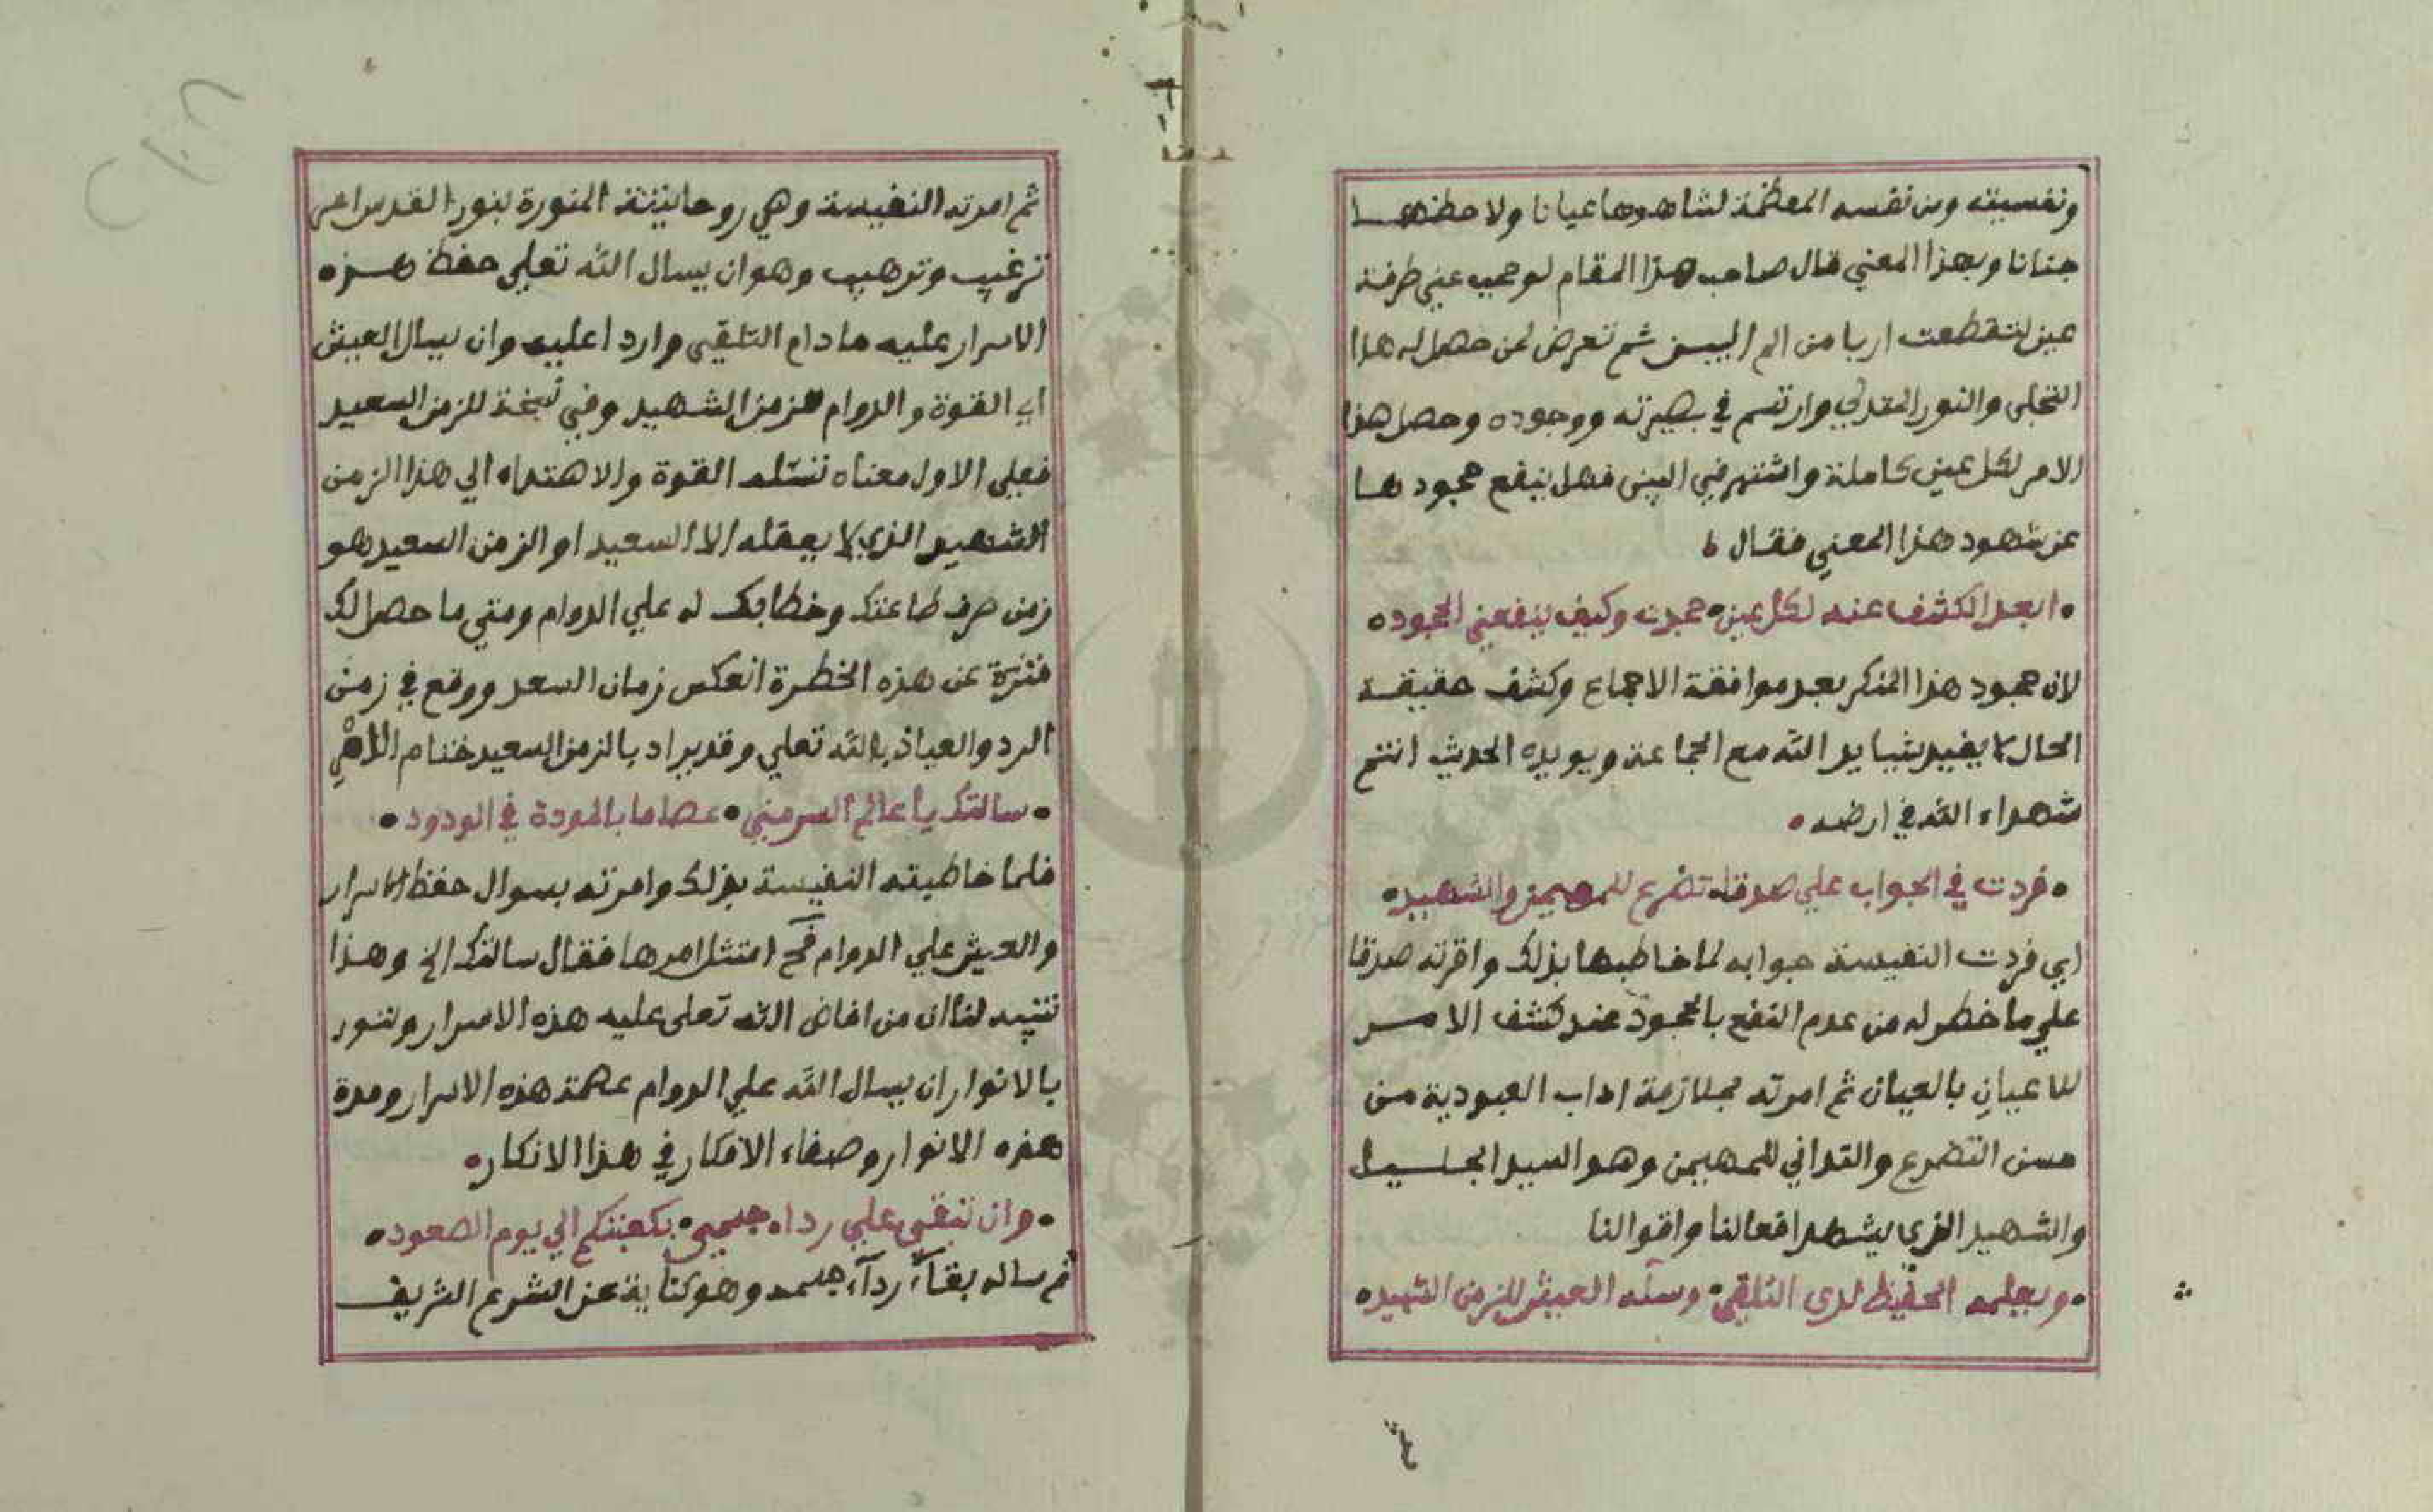 ونفسيته ومن نفسه المعظمة لشاهدوها عيانا ولاحظوها
جنانا وبهذا المعني قال صاحب هذا المقام لو حجب عني طرفة
عين لتقطعت اربا من الم البين ثم تعرض لمن حصل له هذا
التجلي والنور المتدلي وارتسم في بصيرته ووجوده وحصل هذا
الامر لكل عين كاملة واشتهر في البين فهل ينفع جحودها
عن شهود هذا المعني فقال
ابعد الكشف عنه لكل عين جحدته وكيف ينفعني الجحود
لان جحود هذا المنكر بعد موافقة الاجماع وكشف حقيقة
الحال لا يفيد شيا يد الله مع الجماعة ويويده الحديث انتم
شهداء الله في ارضه
فردت في الجواب علي صدقا تضرع للمهيمن والشهيد
اي فردت النفيسة جوابه لما خاطبها بذلك واقرته صدقا
علي ما خطر له من عدم النفع بالجحود عند كشف الامر
للاعيان بالعيان ثم امرته بملازمة اداب العبودية من
حسن التضرع والتداني للمهيمن وهو السيد الجليل
والشهيد الذي يشهد افعالنا واقوالنا
الحفيظ لدي التلقي وسله العيش للزمن الشهيد
ثم امرته النفيسة وهي روحانيته المنورة بنور القدس
ترغيب وترهيب وهو ان يسال الله تعلي حفظ هذه
الاسرار عليه ما دام التلقي واردا عليه وان يسال العيش
اي القوة والدوام للزمن الشهيد وفي نسخة للزمن السعيد
فعلي الاول معناه تسله القوة والاهتداء الي هذا الزمن
الشهيد الذي لا يعقله الا السعيد او الزمن السعيد هو
زمن صرف طاعتك وخطابك له علي الدوام ومتي ما حصل لك
فترة عن هذه الخطرة انعكس زمان السعد ووقع في زمن
الرد والعياذ بالله تعلي وقد يراد بالزمن السعيد ختام
سالتك يا عالم السر مني عصاما بالمودة في الودود
فلما خاطبته النفيسة بذلك وامرته بسوال حفظ الاسرار
والعيش علي الدوام فح امتثل امرها فقال سالتك الخ وهذا
تنبيه لنا ان من افاض الله تعلي عليه هذه الاسرار وتنور
بالانوار ان يسال الله علي الدوام عصمة هذه الاسرار ومدة
هذه الانوار وصفاء الافكار في هذا الانكار
وان تبقي علي رداء جسمي بكعبتكم الي يوم الصعود
ثم ساله بقاء رداء جسمه وهو كناية عن الشرع الشريف